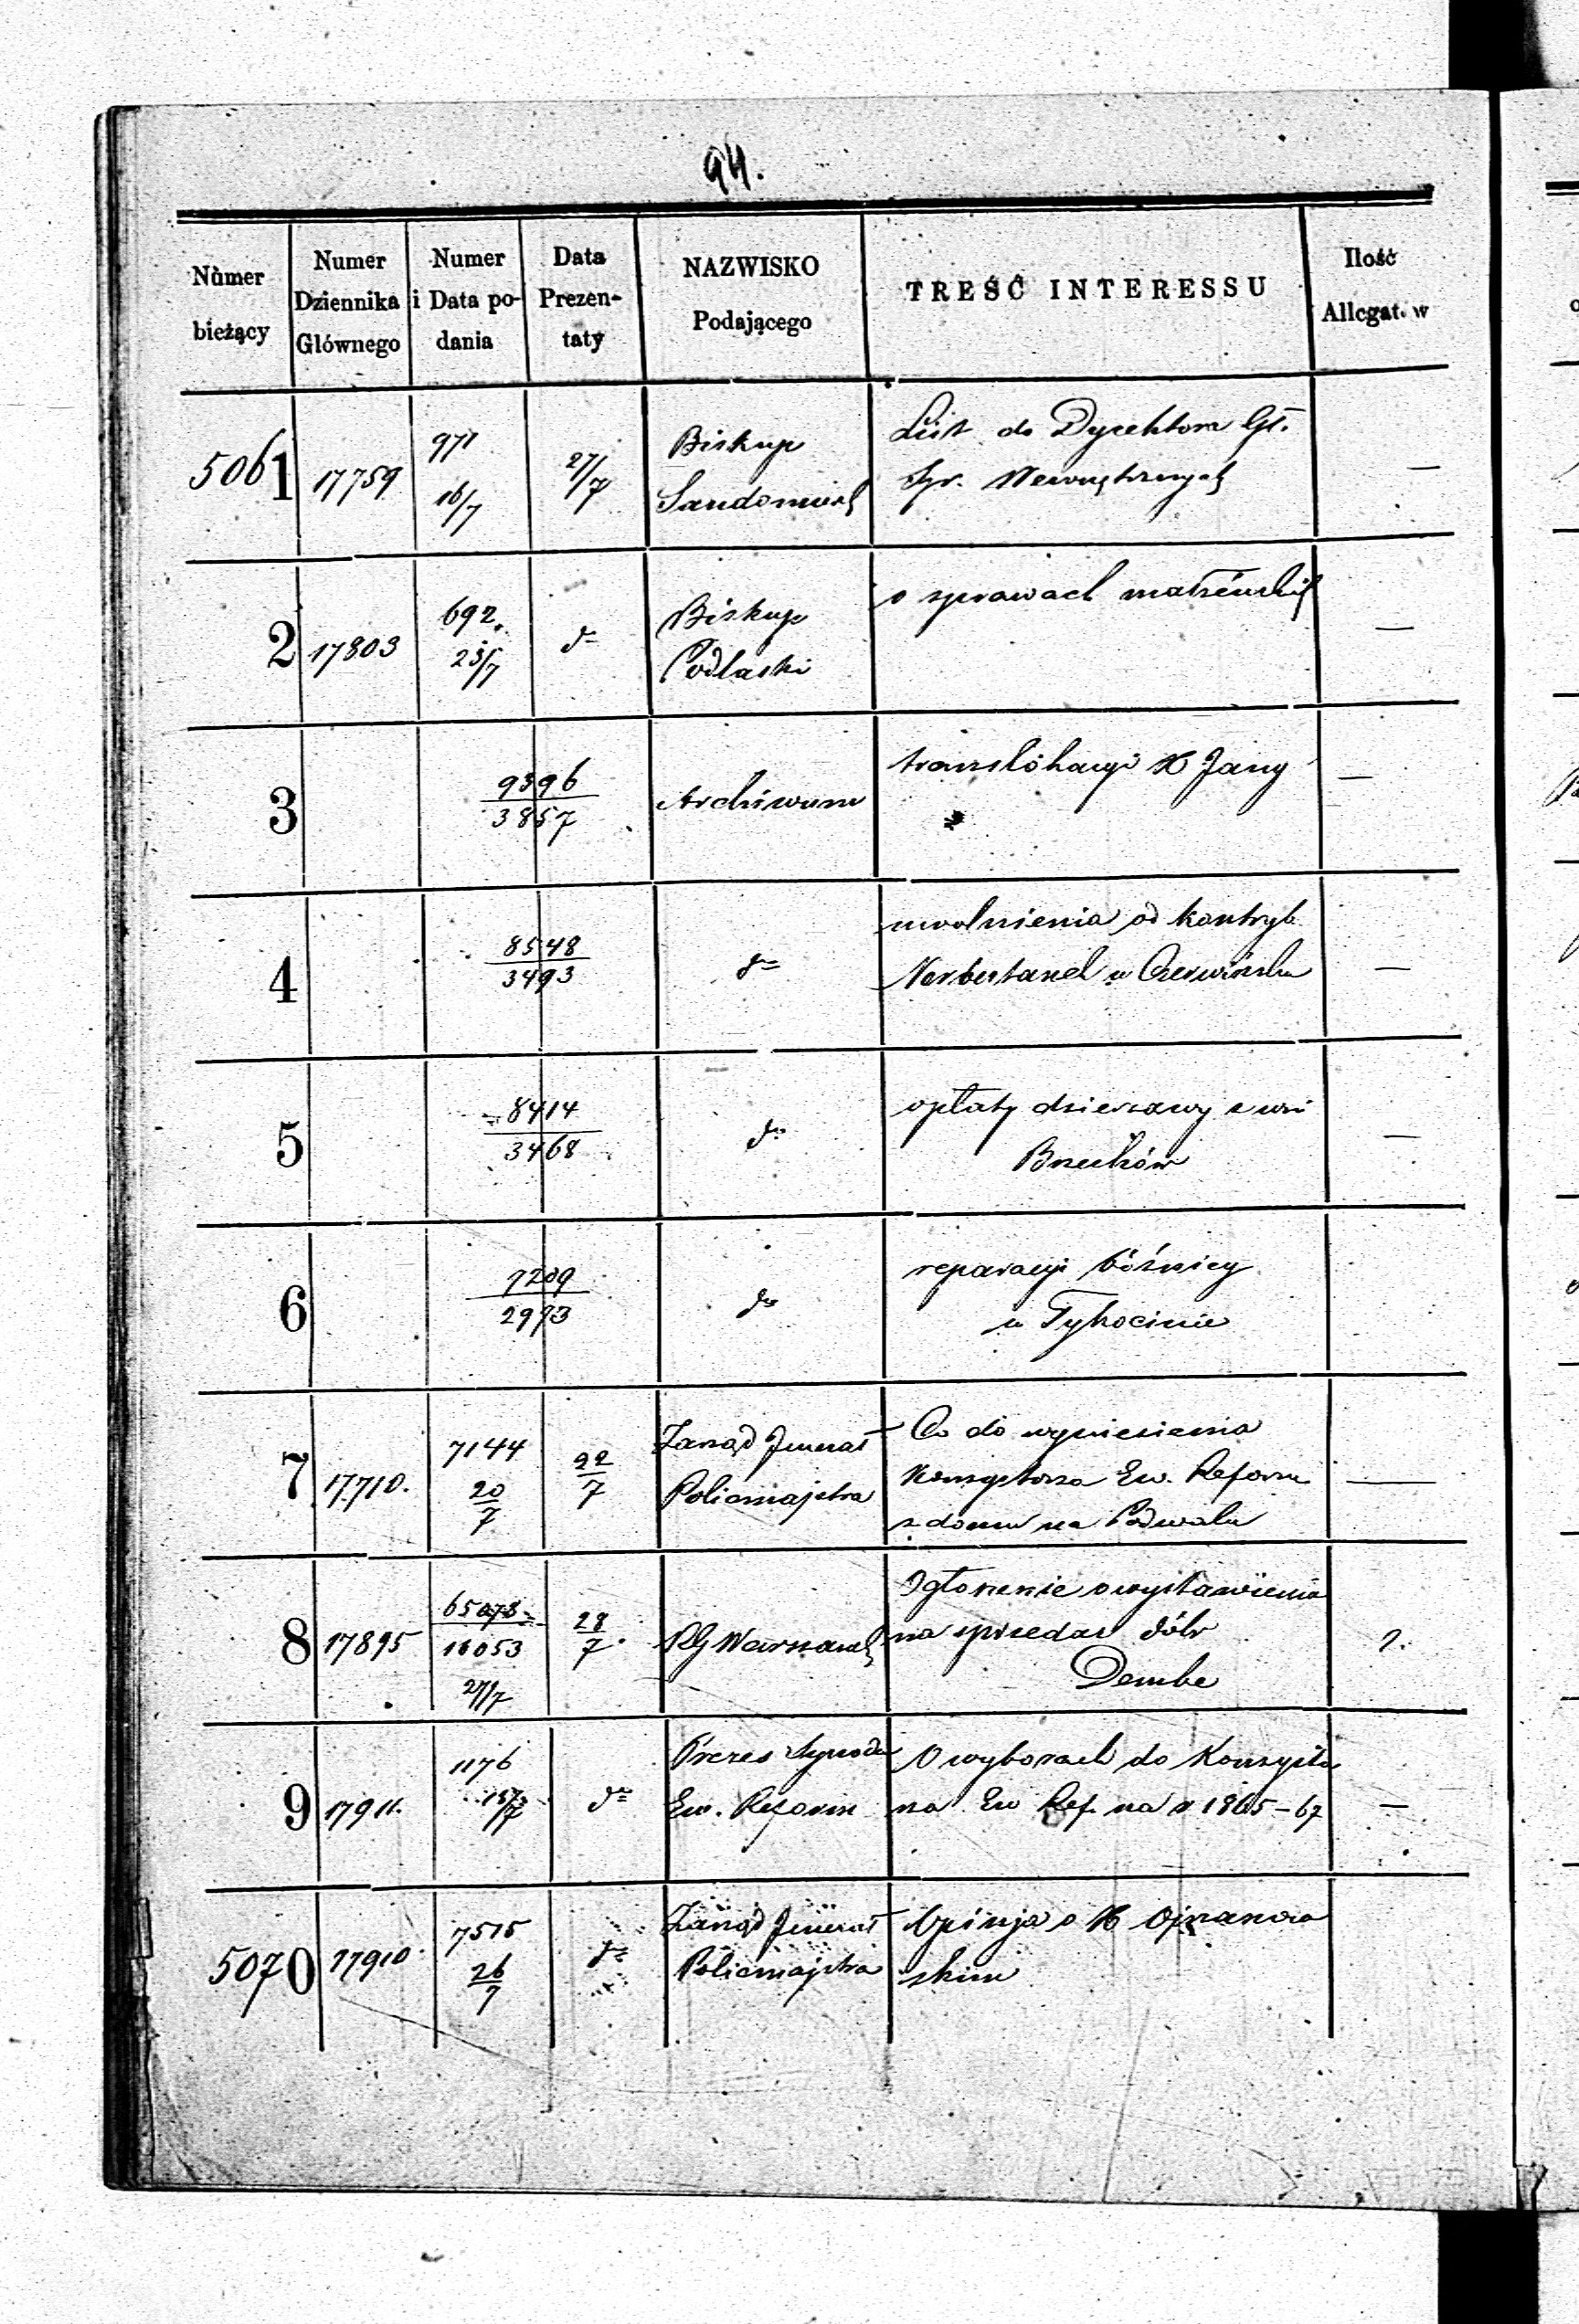 94.
Numer bieżący
Numer Dziennika Głównego
Numer i Data podania
Data Prezentaty
NAZWISKO Podającego
TREŚĆ INTERESSU
Ilość Allegatów
5061 17759 971 16/7 27/7 Biskup Sandomiersk
List do Dyrektora Gł.
Spr. Wewnętrznych —
2 17803 692. 23/7 do Biskup Podlaski
o sprawach małżeńskich —
3 9396 3857 Archiwum
translokacyi X Jany —
4 8548 3493 do
uwolnienia od kontryb
Norbertanek w Czerwińsku —
5 8414 3468 do
opłaty dzierżawy z wsi
Bzuków —
6 7209 2973 do
reparacyi bóśnicy
w Tykocinie
7 17.710. 7144 20/7 22/7 Zarząd Jenerał Policmajstra
Co do wyniesienia
Konsystorza Ew. Reform
z domu na Podwalu —
8 17895 65073 16053 27/7 28/7. RG Warszawsk
Ogłoszenie o wystawieniu
na sprzedaż dóbr
Dembe
9 17911. 1176 do Prezes Synodu Ew. Reform
O wyborach do Konsysto
rza Ew Ref. na r 1865-67 —
5070 17910. 7515 26/7 do Zarząd Jenerał Policmajstra
Opinja o X
skim